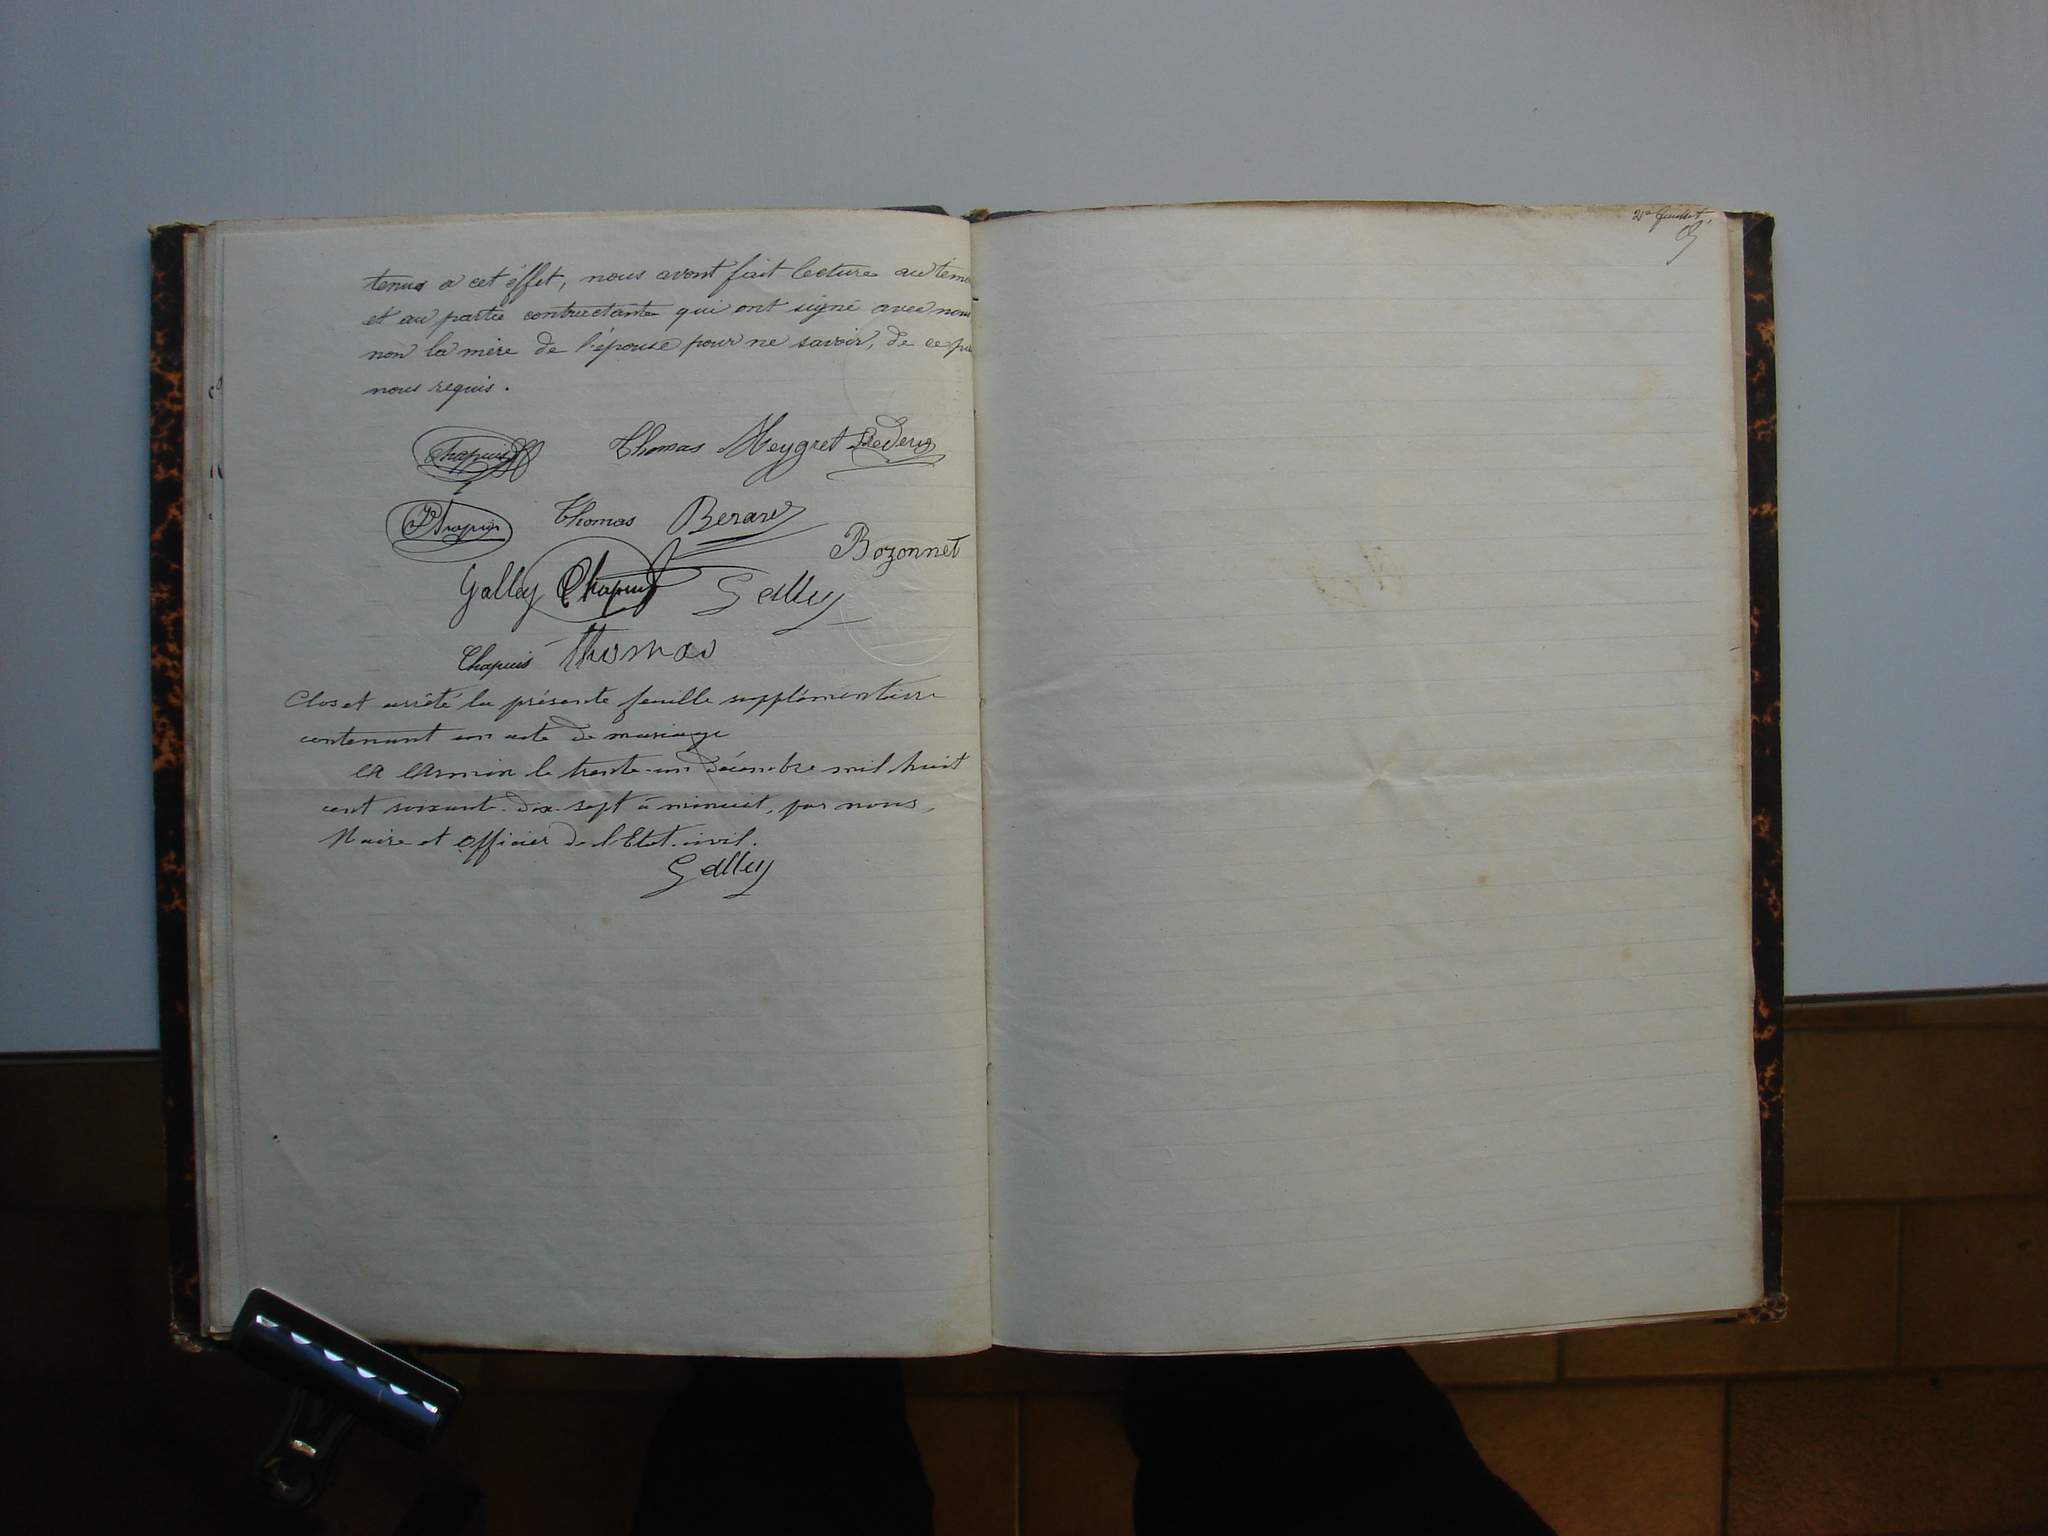 tenus a cet éffet, nous avont fait lecture au témo
et au partie contractante qui ont signé avec nous
non la mère de l'épouse pour ne savoir, de ce
nous requis.
Chapuis Thomas Meygret
Chapuis Thomas Berard
Bozonnet
Galley Chapuis Galley
Chapuis Thomas
Clos et arrêté la présente feuille supplémentaire
contenant un acte de mariage
A le trente-un décembre mil huit
cent soixante-dix-sept à minuit, par nous,
Maire et officier de l'Etat-civil.
Galley
2e feuillet